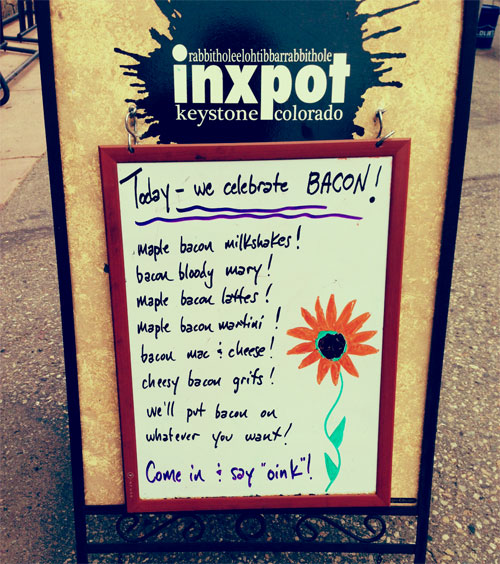 rabbitholeelohtibbarrabbithole
inxpot
keystone colorado
Today - we celebrate BACON!
maple bacon milkshakes!
bacon bloody mary!
maple bacon lattes!
maple bacon martini!
bacon mac & cheese!
cheesy bacon grits!
we'll put bacon on
whatever you want!
Come in & say "oink"!